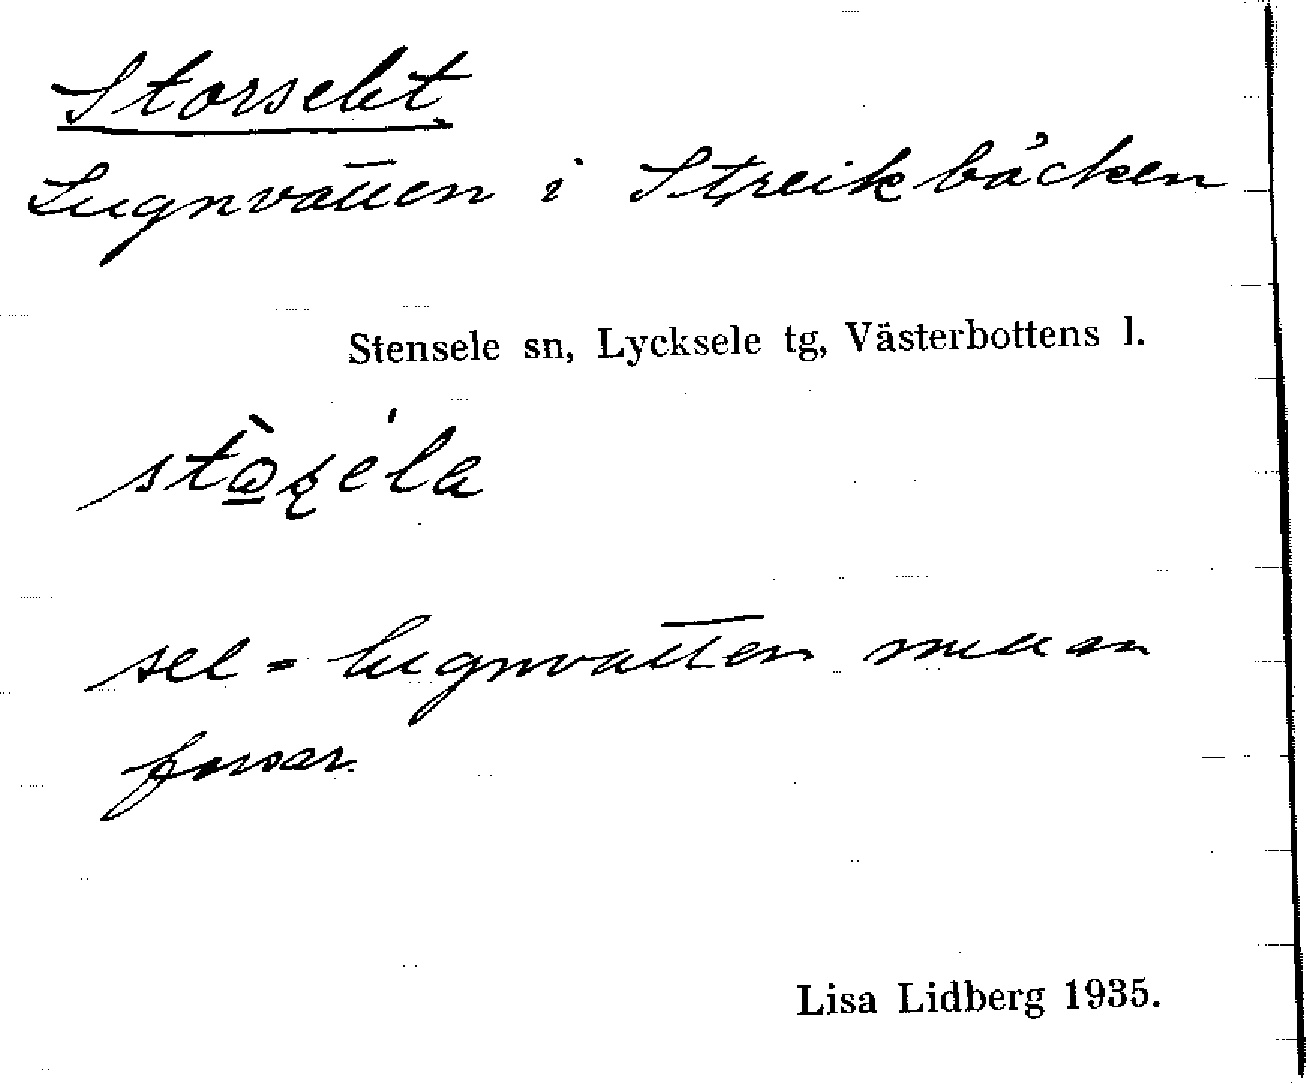 Storselet
Lugnvatten i Streikbäcken
Stensele sn, Lycksele tg, Västerbottens l.
sel = lugnvatten mellan
forsar.
Lisa Lidberg 1935.